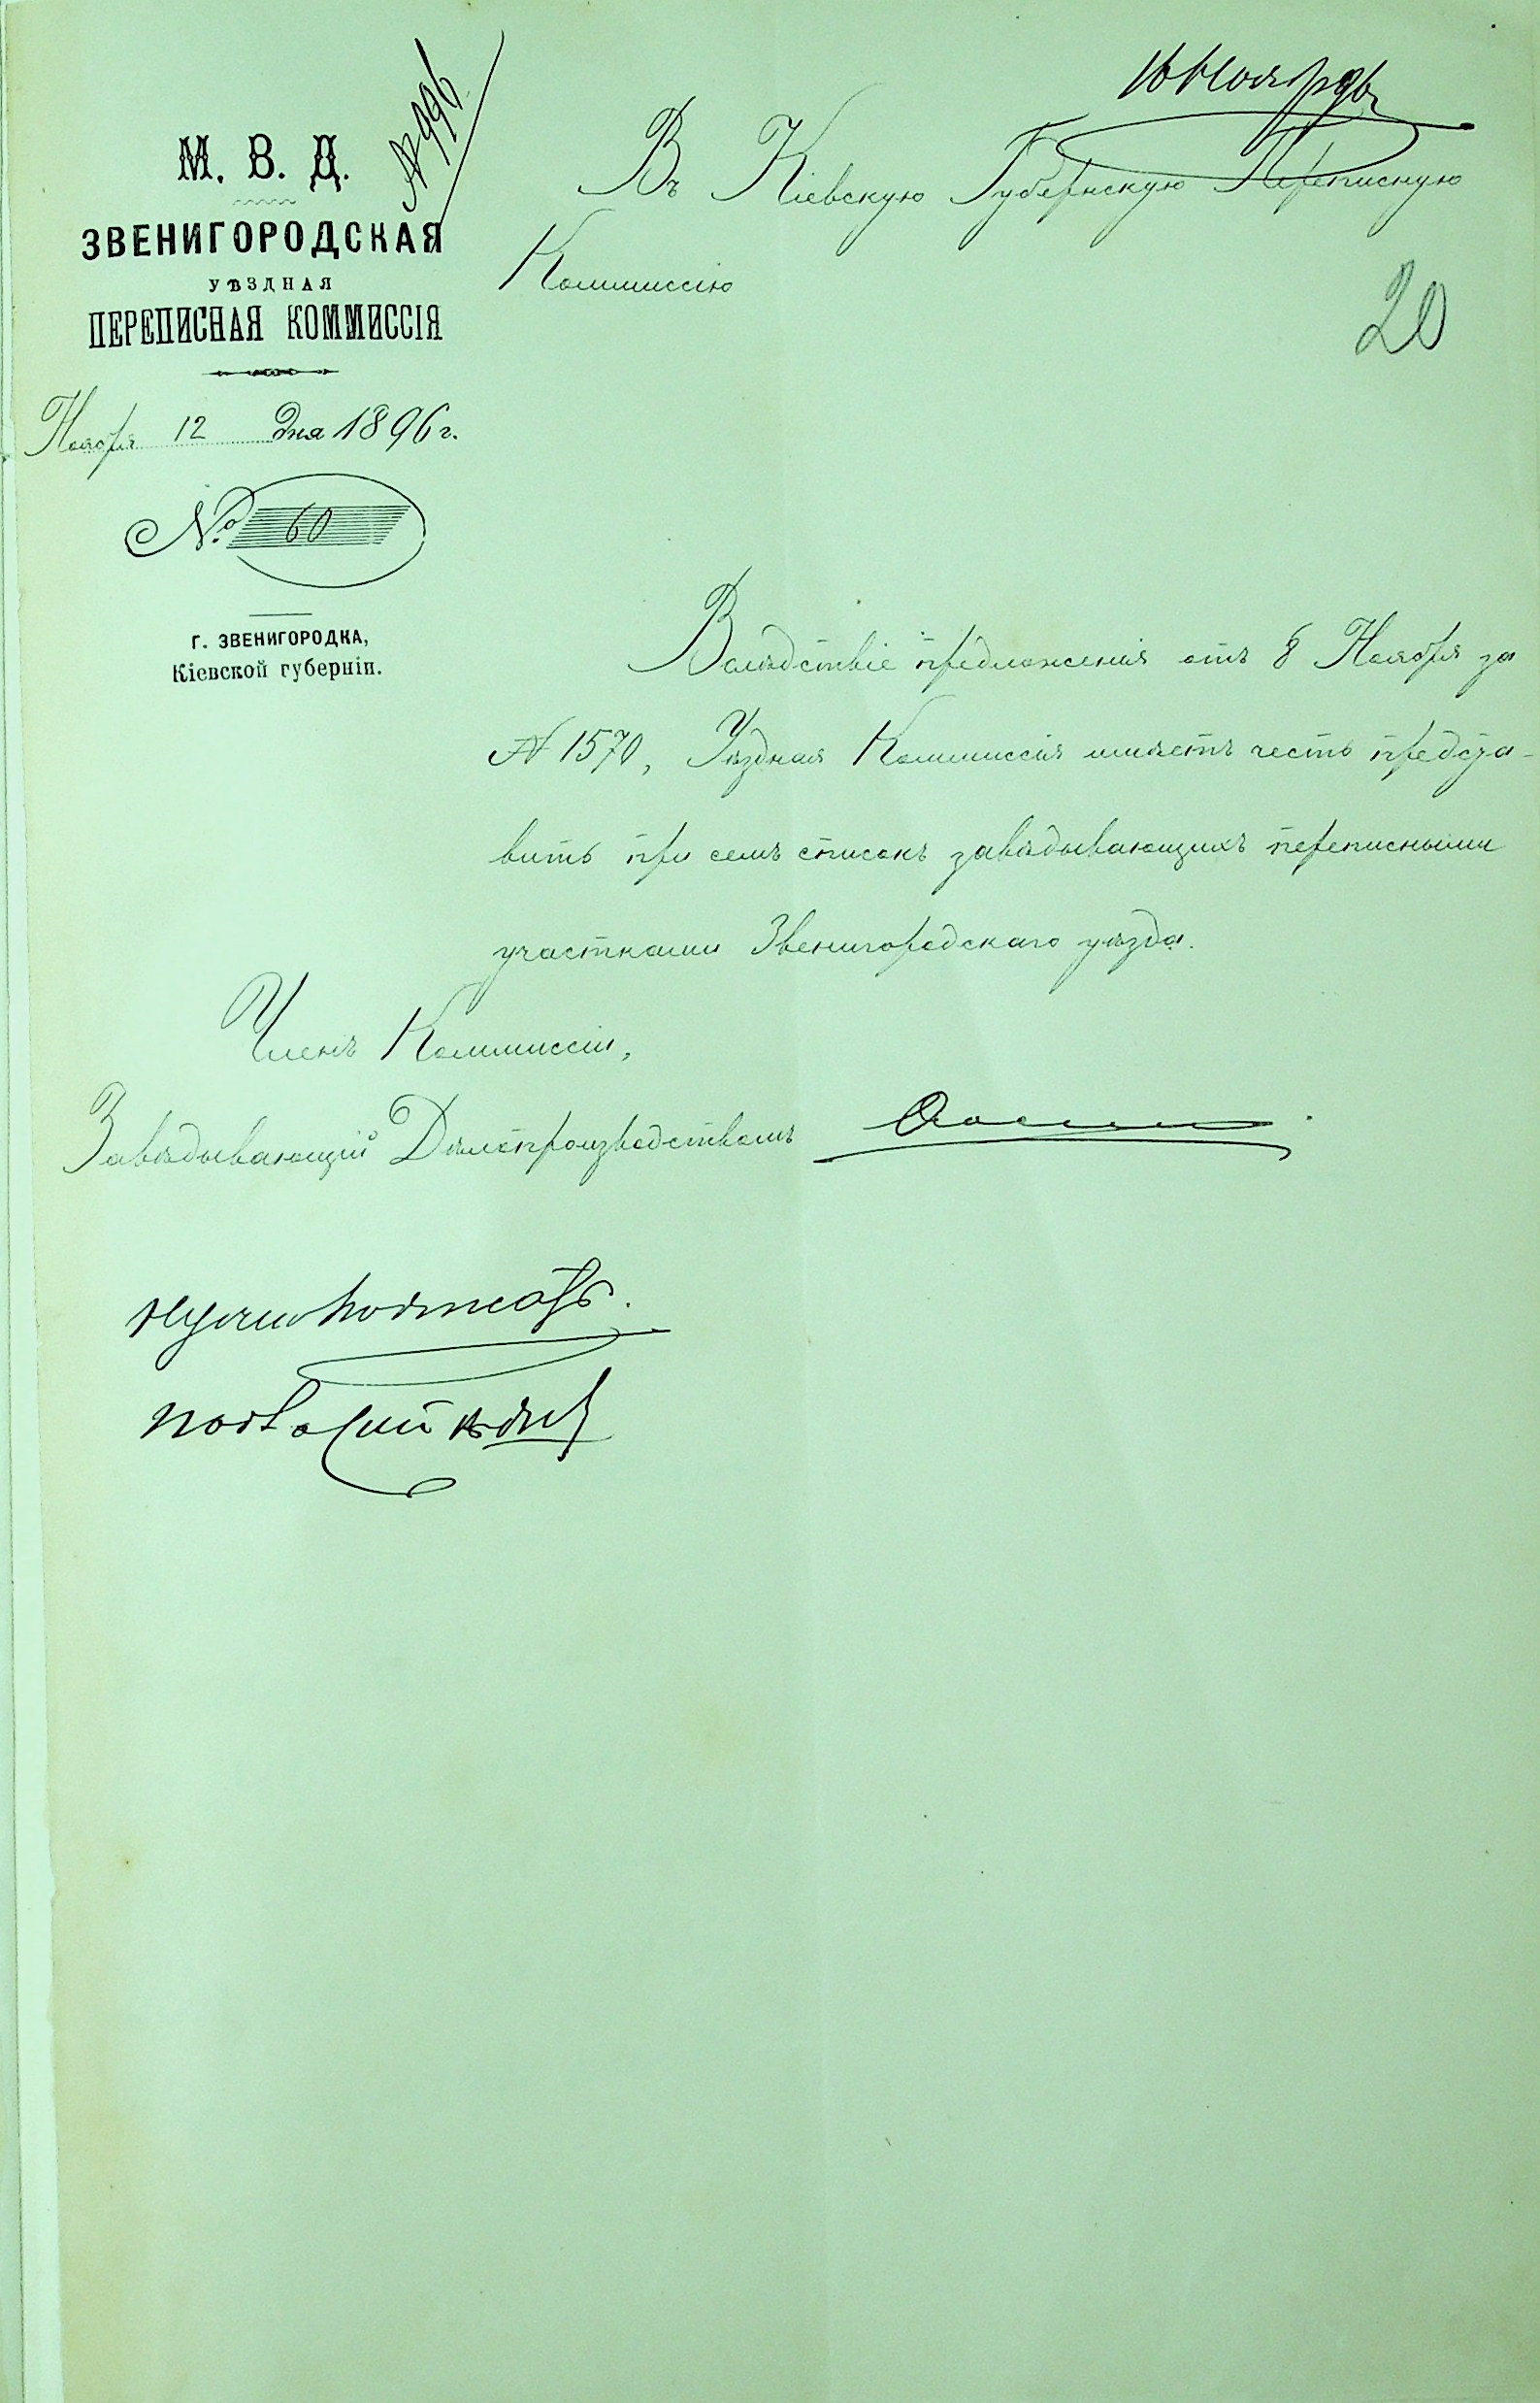 16 Ноября 96
№ 996
М. В. Д.
ЗВЕНИГОРОДСКАЯ
УѢЗДНАЯ
ПЕРЕПИСНАЯ КОММИССІЯ
Ноября 12 дня 1896 г.
№ 60
Г. ЗВЕНИГОРОДКА,
Кіевской губерніи.
Въ Кіевскую Губернскую Переписную
Коммиссію
20
Вслѣдствіе предложенія отъ 8 Ноября за
№ 1570, Уѣздная Коммиссія имѣетъ честь предста-
вить при семъ списокъ завѣдывающихъ переписными
участками Звенигородскаго уѣзда.
Членъ Коммиссіи,
Завѣдывающій Дѣлопроизводствомъ